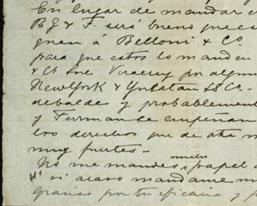 En lugar de mandar c
B. y F. será bueno que es
guen á Belloni & Co.
para que estos lo manden
& Ct. Ine. Veracruz por algun
New York & Yucatan SS Co.
debalde y probablemente
y Furman se empeñan
los derechos que de ahí n
muy fuertes.-
No me mandes, mucho papel
si acaso mandame m
Gracias por tu eficacia y p